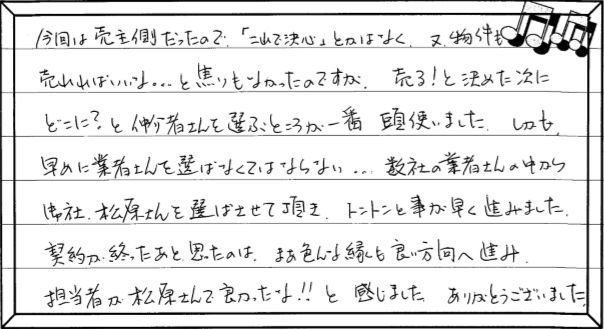 今回は売主側だったので、「これで決心」とかはなく、又、物件も
売れればいいな…と焦りもなかったのですが、売る！と決めた次に
どこに？と仲介者さんを選ぶところが一番 頭使いました。しかも、
早めに業者さんを選ばなくてはならない…数社の業者さんの中から
御社、松原さんを選ばさせて頂き、トントンと事が早く進みました。
契約が終ったあと思ったのは、まあ色んな縁も良い方向へ進み、
担当者が松原さんで良かったな!!と感じました。ありがとうございました。